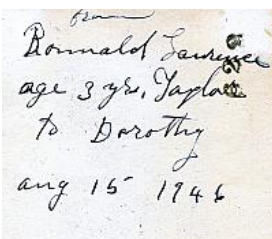 from
Ronnald Lawrence
age 3 yrs, Taylor
to Dorothy
aug 15 1946